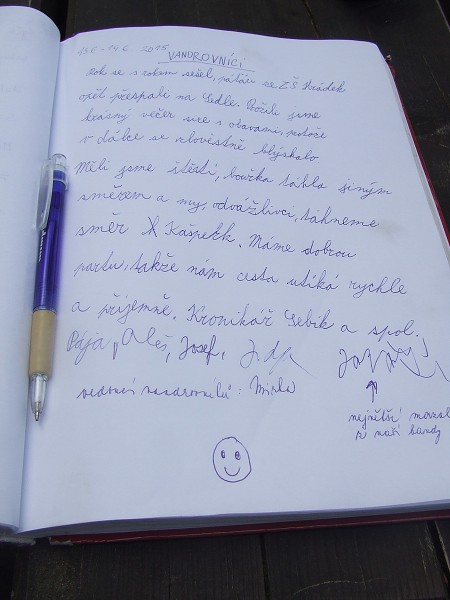 13.6 - 14.6 2015
VANDROVNÍCI
Rok se s rokem sešel, páťáci ze ZŠ Hrádek
opět přespali na Sedle. Prožili jsme
krásný večer sice s obavami, protože
v dálce se zlověstně blýskalo
Měli jsme štěstí, bouřka táhla jiným
směrem a my, odvážlivci, táhneme
směr Kašperk. Máme dobrou
partu, takže nám cesta utíká rychle
a příjemně. Kronikář Sebík a spol.
Pája, Aleš, Josef,
vedoucí vandrovníků: Mirka
největší
z naší bandy